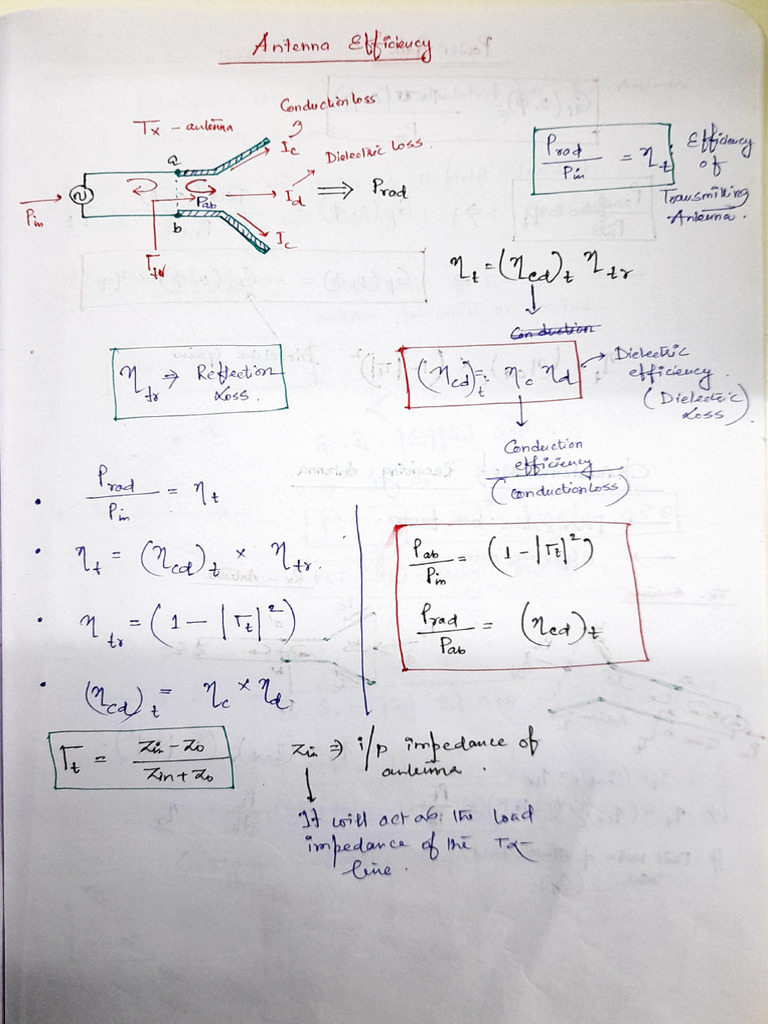 Antenna Efficiency
Conduction Loss
Tx - antenna
Ic
Dielectric Loss.
a
Pin
Pab
Id ⇒ Prad
b
Ic
Γtr
Prad/Pin = ηt
Efficiency
of
Transmitting
Antenna.
ηt = (ηcd)t ηtr
Conduction
ηtr ⇒ Reflection
Loss.
(ηcd)t = ηc ηd
Dielectric
efficiency.
(Dielectric
Loss)
Conduction
efficiency
(conduction Loss)
• Prad/Pin = ηt
• ηt = (ηcd)t × ηtr.
• ηtr = (1 - |Γt|²)
• (ηcd)t = ηc × ηd.
Pab/Pin = (1 - |Γt|²)
Prad/Pab = (ηcd)t
Γt = Zin - Zo / Zin + Zo
Zin ⇒ i/p impedance of
antenna.
It will act as the load
impedance of the Tx-
line.